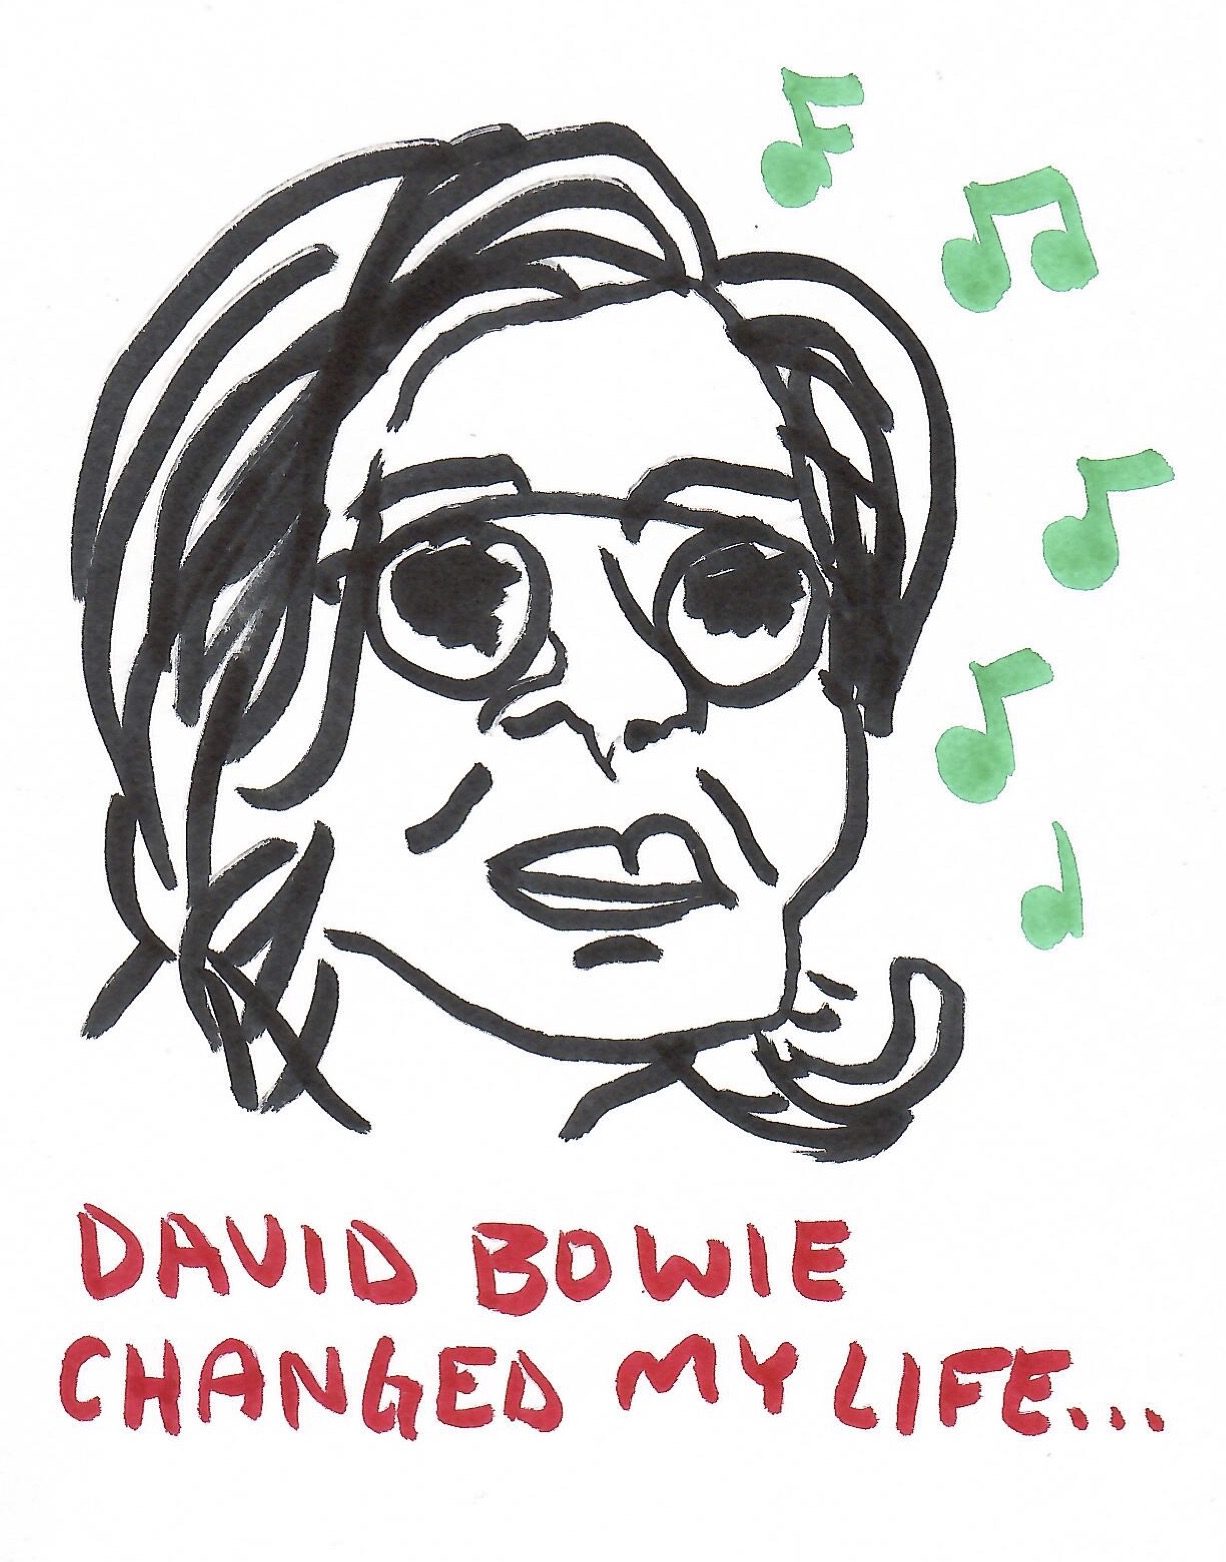 DAVID BOWIE
CHANGED MY LIFE...